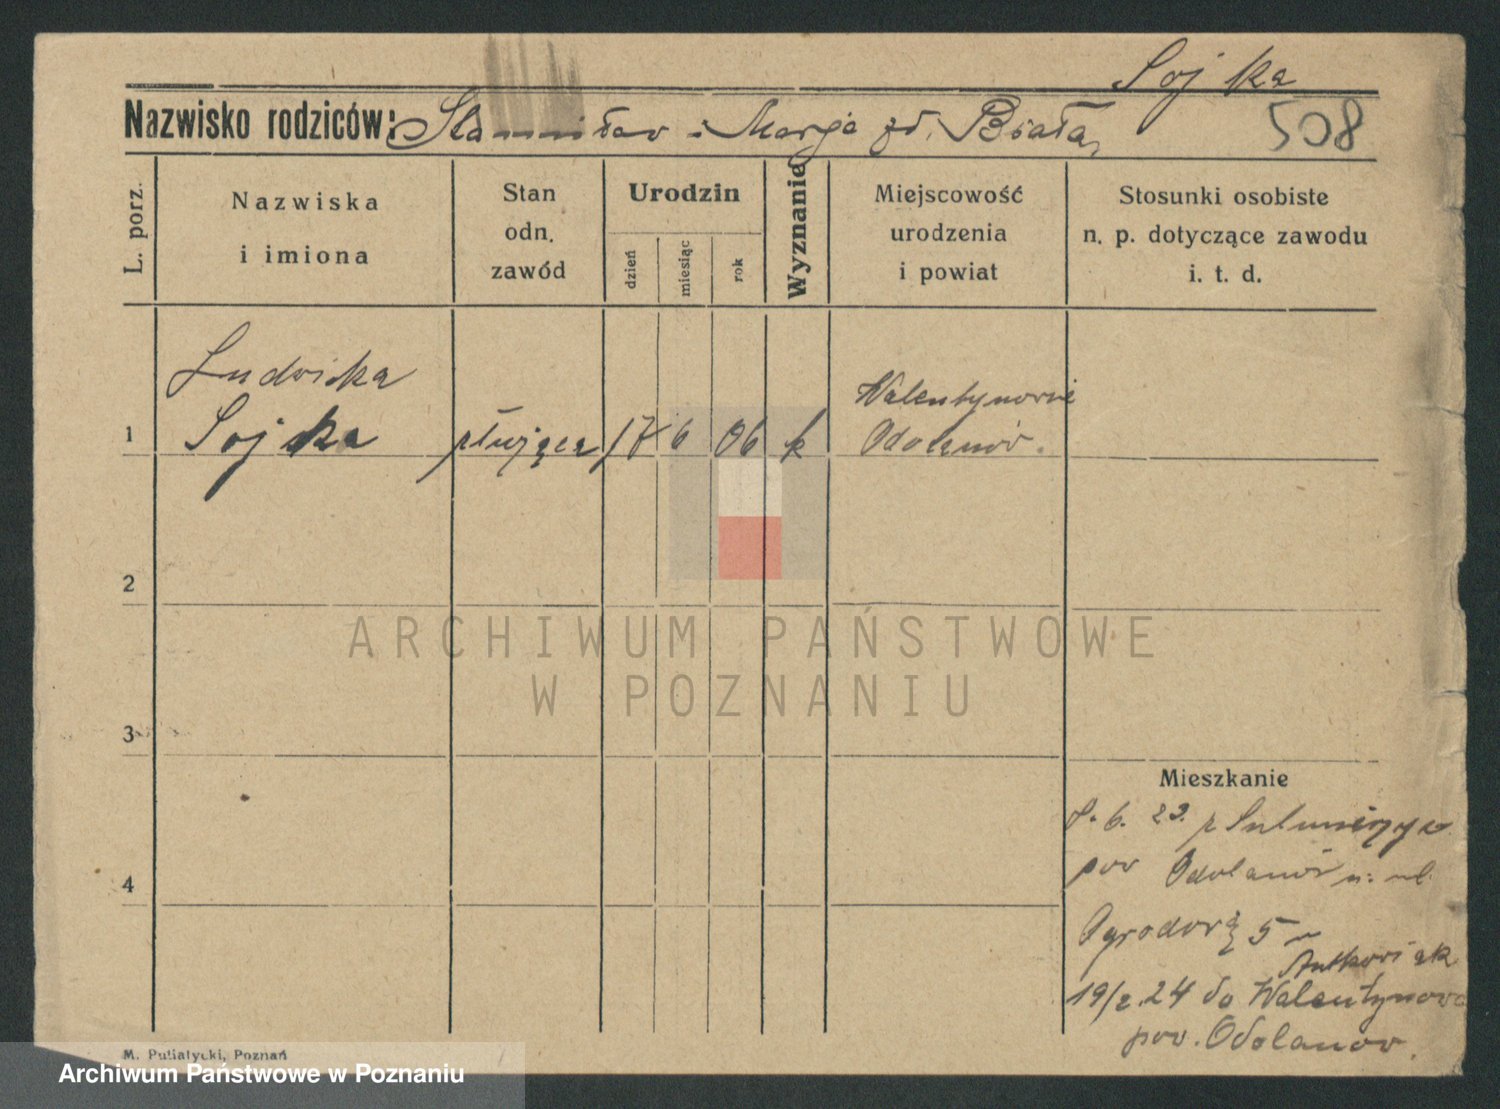 Sojka
Nazwisko rodziców: Stanisław i Marja zd. Biała,
508
L. porz.
Nazwiska
i imiona
Stan
odn.
zawód
Urodzin
dzień
miesiąc
rok
Wyznanie
Miejscowość
urodzenia
i powiat
Stosunki osobiste
n. p. dotyczące zawodu
i. t. d.
Ludwika
Walentynowie
1 Sojka służąca 17 6 06 k Odolanów.
2
ARCHIWUM PAŃSTWOWE
W POZNANIU
3
Mieszkanie
6. 23. z Sulmierzyc
4 pow Odolanów n. ul.
Ogrodową 5
Antkowiak
19/2.24 do Walentynowa
pow. Odolanow.
M. Putiatycki, Poznań
Archiwum Państwowe w Poznaniu